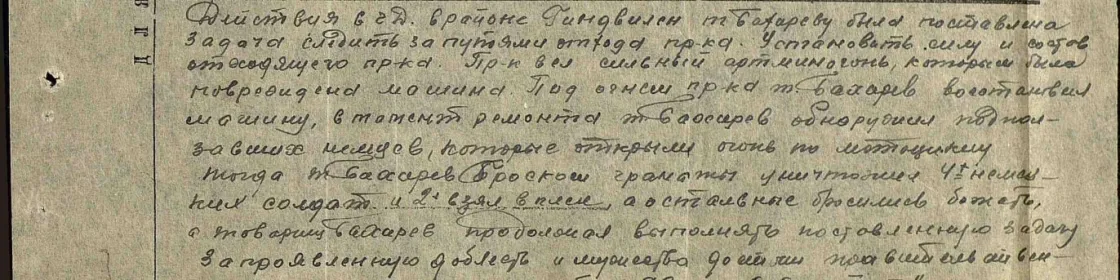 ДЛЯ
Действия в ГД. в районе Гиндвилен т Бахареву была поставлена
задача следить за путями отхода пр-ка. Установить силу и состав
отходящего пр-ка. Пр-к вел сильный артминогонь, которым была
повреждена машина. Под огнем пр-ка т Бахарев восстановил
машину, в момент ремонта т Бахарев обнаружил подпол-
завших немцев, которые открыли огонь по мотоциклу
тогда т Бахарев броском гранаты уничтожил 4х немец-
ких солдат и 2х взял в плен, а остальные бросились бежать,
а товарищ Бахарев продолжал выполнять поставленную задачу
За проявленную доблесть и мужество достоин правительствен-